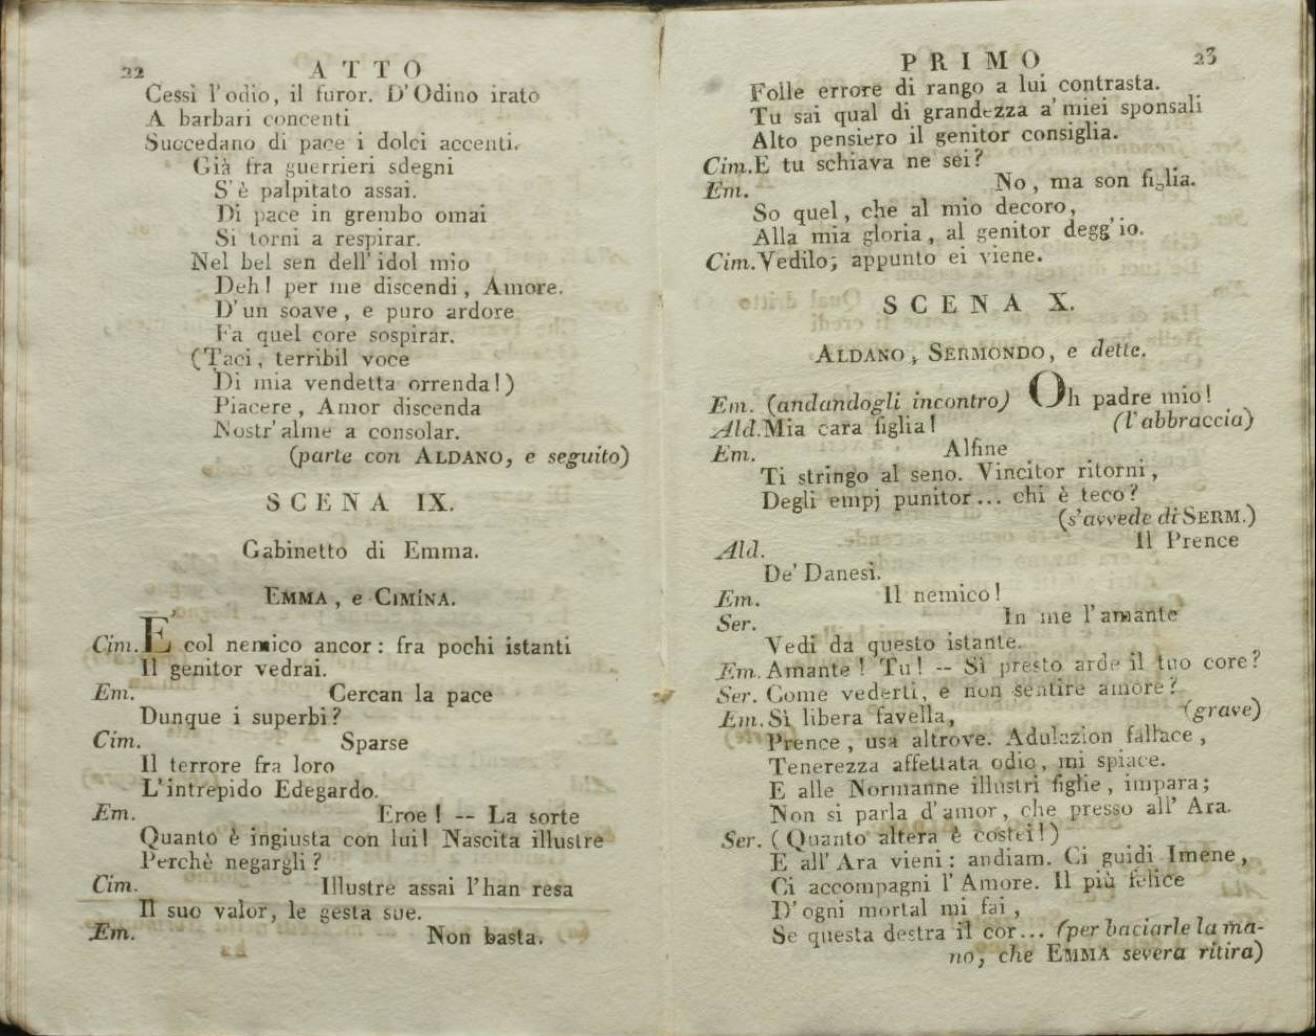 22
ATTO
Cessi l'odio, il furor. D'Odino irato
A barbari concenti
Succedano di pace i dolci accenti.
Già fra guerrieri sdegni
S'è palpitato assai.
Di pace in grembo omai
Si torni a respirar.
Nel bel sen dell'idol mio
Deh! per me discendi, Amore.
D'un soave, e puro ardore
Fa quel core sospirar.
(Taci, terribil voce
Di mia vendetta orrenda!)
Piacere, Amor discenda
Nostr'alme a consolar.
(parte con ALDANO, e seguito)
SCENA IX.
Gabinetto di Emma.
EMMA, e CIMINA.
Cim. E' col nemico ancor: fra pochi istanti
Il genitor vedrai.
Em. Cercan la pace
Dunque i superbi?
Cim. Sparse
Il terrore fra loro
L'intrepido Edegardo.
Em. Eroe! -- La sorte
Quanto è ingiusta con lui! Nascita illustre
Perchè negargli?
Cim. Illustre assai l'han resa
Il suo valor, le gesta sue.
Em. Non basta.
PRIMO
23
Folle errore di rango a lui contrasta.
Tu sai qual di grandezza a' miei sponsali
Alto pensiero il genitor consiglia.
Cim. E tu schiava ne sei?
Em. No, ma son figlia.
So quel, che al mio decoro,
Alla mia gloria, al genitor degg'io.
Cim. Vedilo; appunto ei viene.
SCENA X.
ALDANO, SERMONDO, e dette.
Em. (andandogli incontro) Oh padre mio!
Ald. Mia cara figlia! (l'abbraccia)
Em. Alfine
Ti stringo al seno. Vincitor ritorni,
Degli empj punitor... chi è teco?
(s'avvede di SERM.)
Ald. Il Prence
De' Danesi.
Em. Il nemico!
Ser. In me l'amante
Vedi da questo istante.
Em. Amante! Tu! -- Sì presto arde il tuo core?
Ser. Come vederti, e non sentire amore?
Em. Sì libera favella, (grave)
Prence, usa altrove. Adulazion fallace,
Tenerezza affettata odio, mi spiace.
E alle Normanne illustri figlie, impara;
Non si parla d'amor, che presso all' Ara.
Ser. (Quanto altera è costei!)
E all' Ara vieni: andiam. Ci guidi Imene,
Ci accompagni l'Amore. Il più felice
D'ogni mortal mi fai,
Se questa destra il cor... (per baciarle la ma-
no, che EMMA severa ritira)